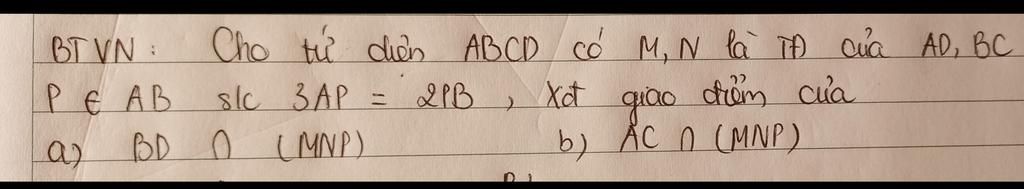 BTVN: Cho tứ diện ABCD có M, N là TĐ của AD, BC
P ∈ AB s/c 3AP = 2PB, Xđ giao điểm của
a) BD ∩ (MNP) b) AC ∩ (MNP)